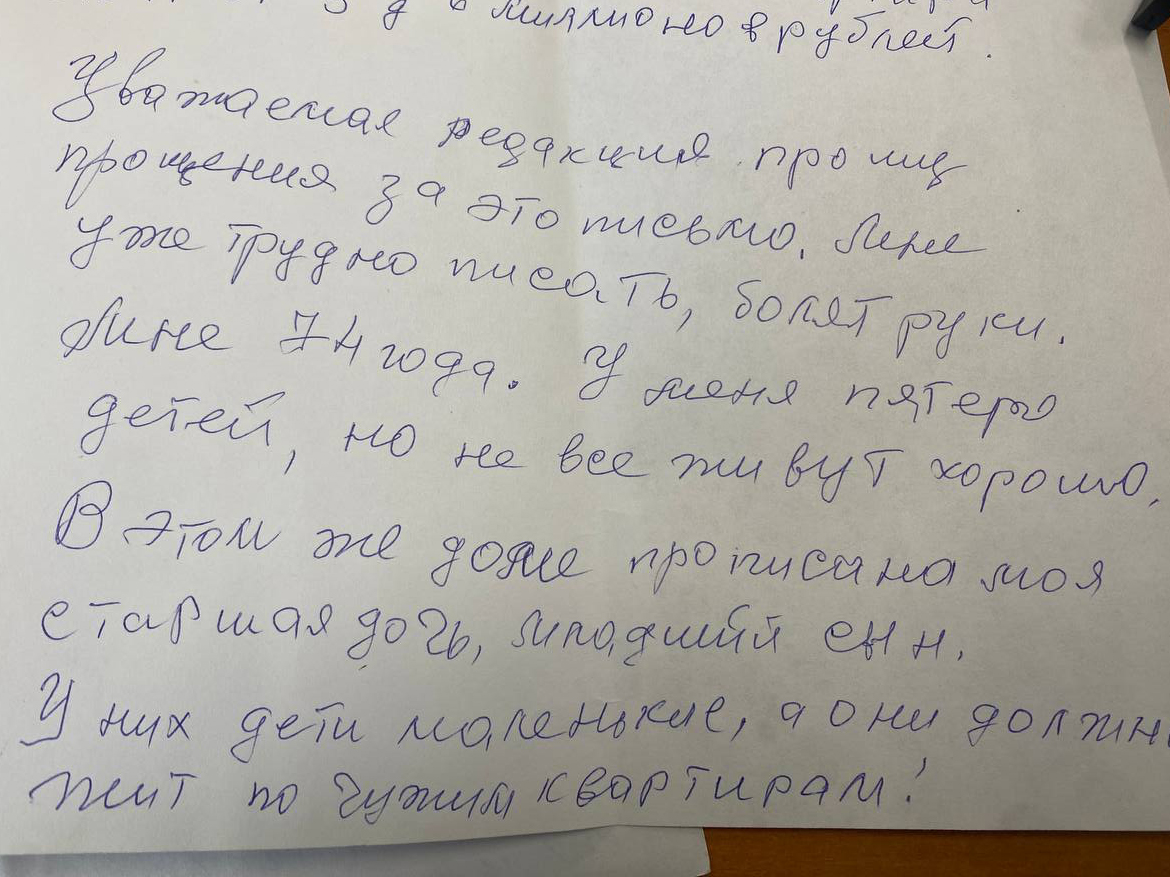 миллионов рублей.
Уважаемая редакция прошу
прощения за это письмо. Мне
уже трудно писать, болят руки.
Мне 74 года. У меня пятеро
детей, но не все живут хорошо.
В этом же доме прописана моя
старшая дочь, младший сын.
У них дети маленькие, а они должн
жит по чужим квартирам!